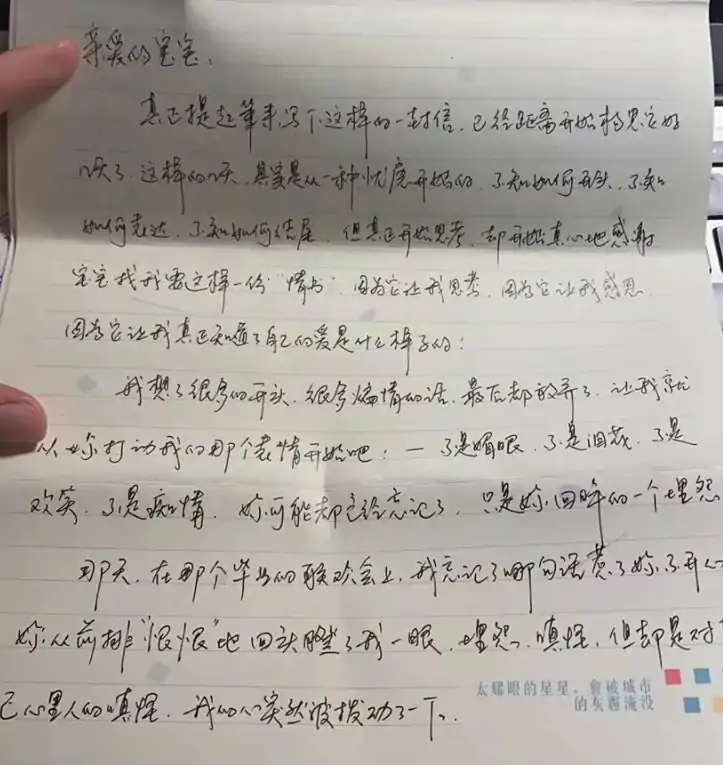 亲爱的宝宝,
真正提起筆来写下这样的一封信,已经距离开始构思它好
几天了,这样的几天,其实是从一种忧虑开始的,不知如何开头,不知
如何表达,不知如何结尾,但真正开始思考,却开始真心地感谢
宝宝找我要这样一份“情书”,因为它让我思考,因为它让我感恩,
因为它让我真正知道了自己的爱是什么样子的:
我想了很多的开头,很多煽情的话,最后都放弃了,让我就
从妳打动我的那个表情开始吧:—不是媚眼,不是泪花,不是
欢笑,不是痴情,妳可能都已经忘记了,只是妳回眸的一个埋怨
那天,在那个毕业的联欢会上,我忘记了哪句话惹了妳不开心
妳从前排“恨恨”地回头瞪了我一眼,埋怨,嗔怪,但却是对
己心里人的嗔怪,我的心突然被拨动了一下。
太耀眼的星星,會被城市
的灰霾淹没